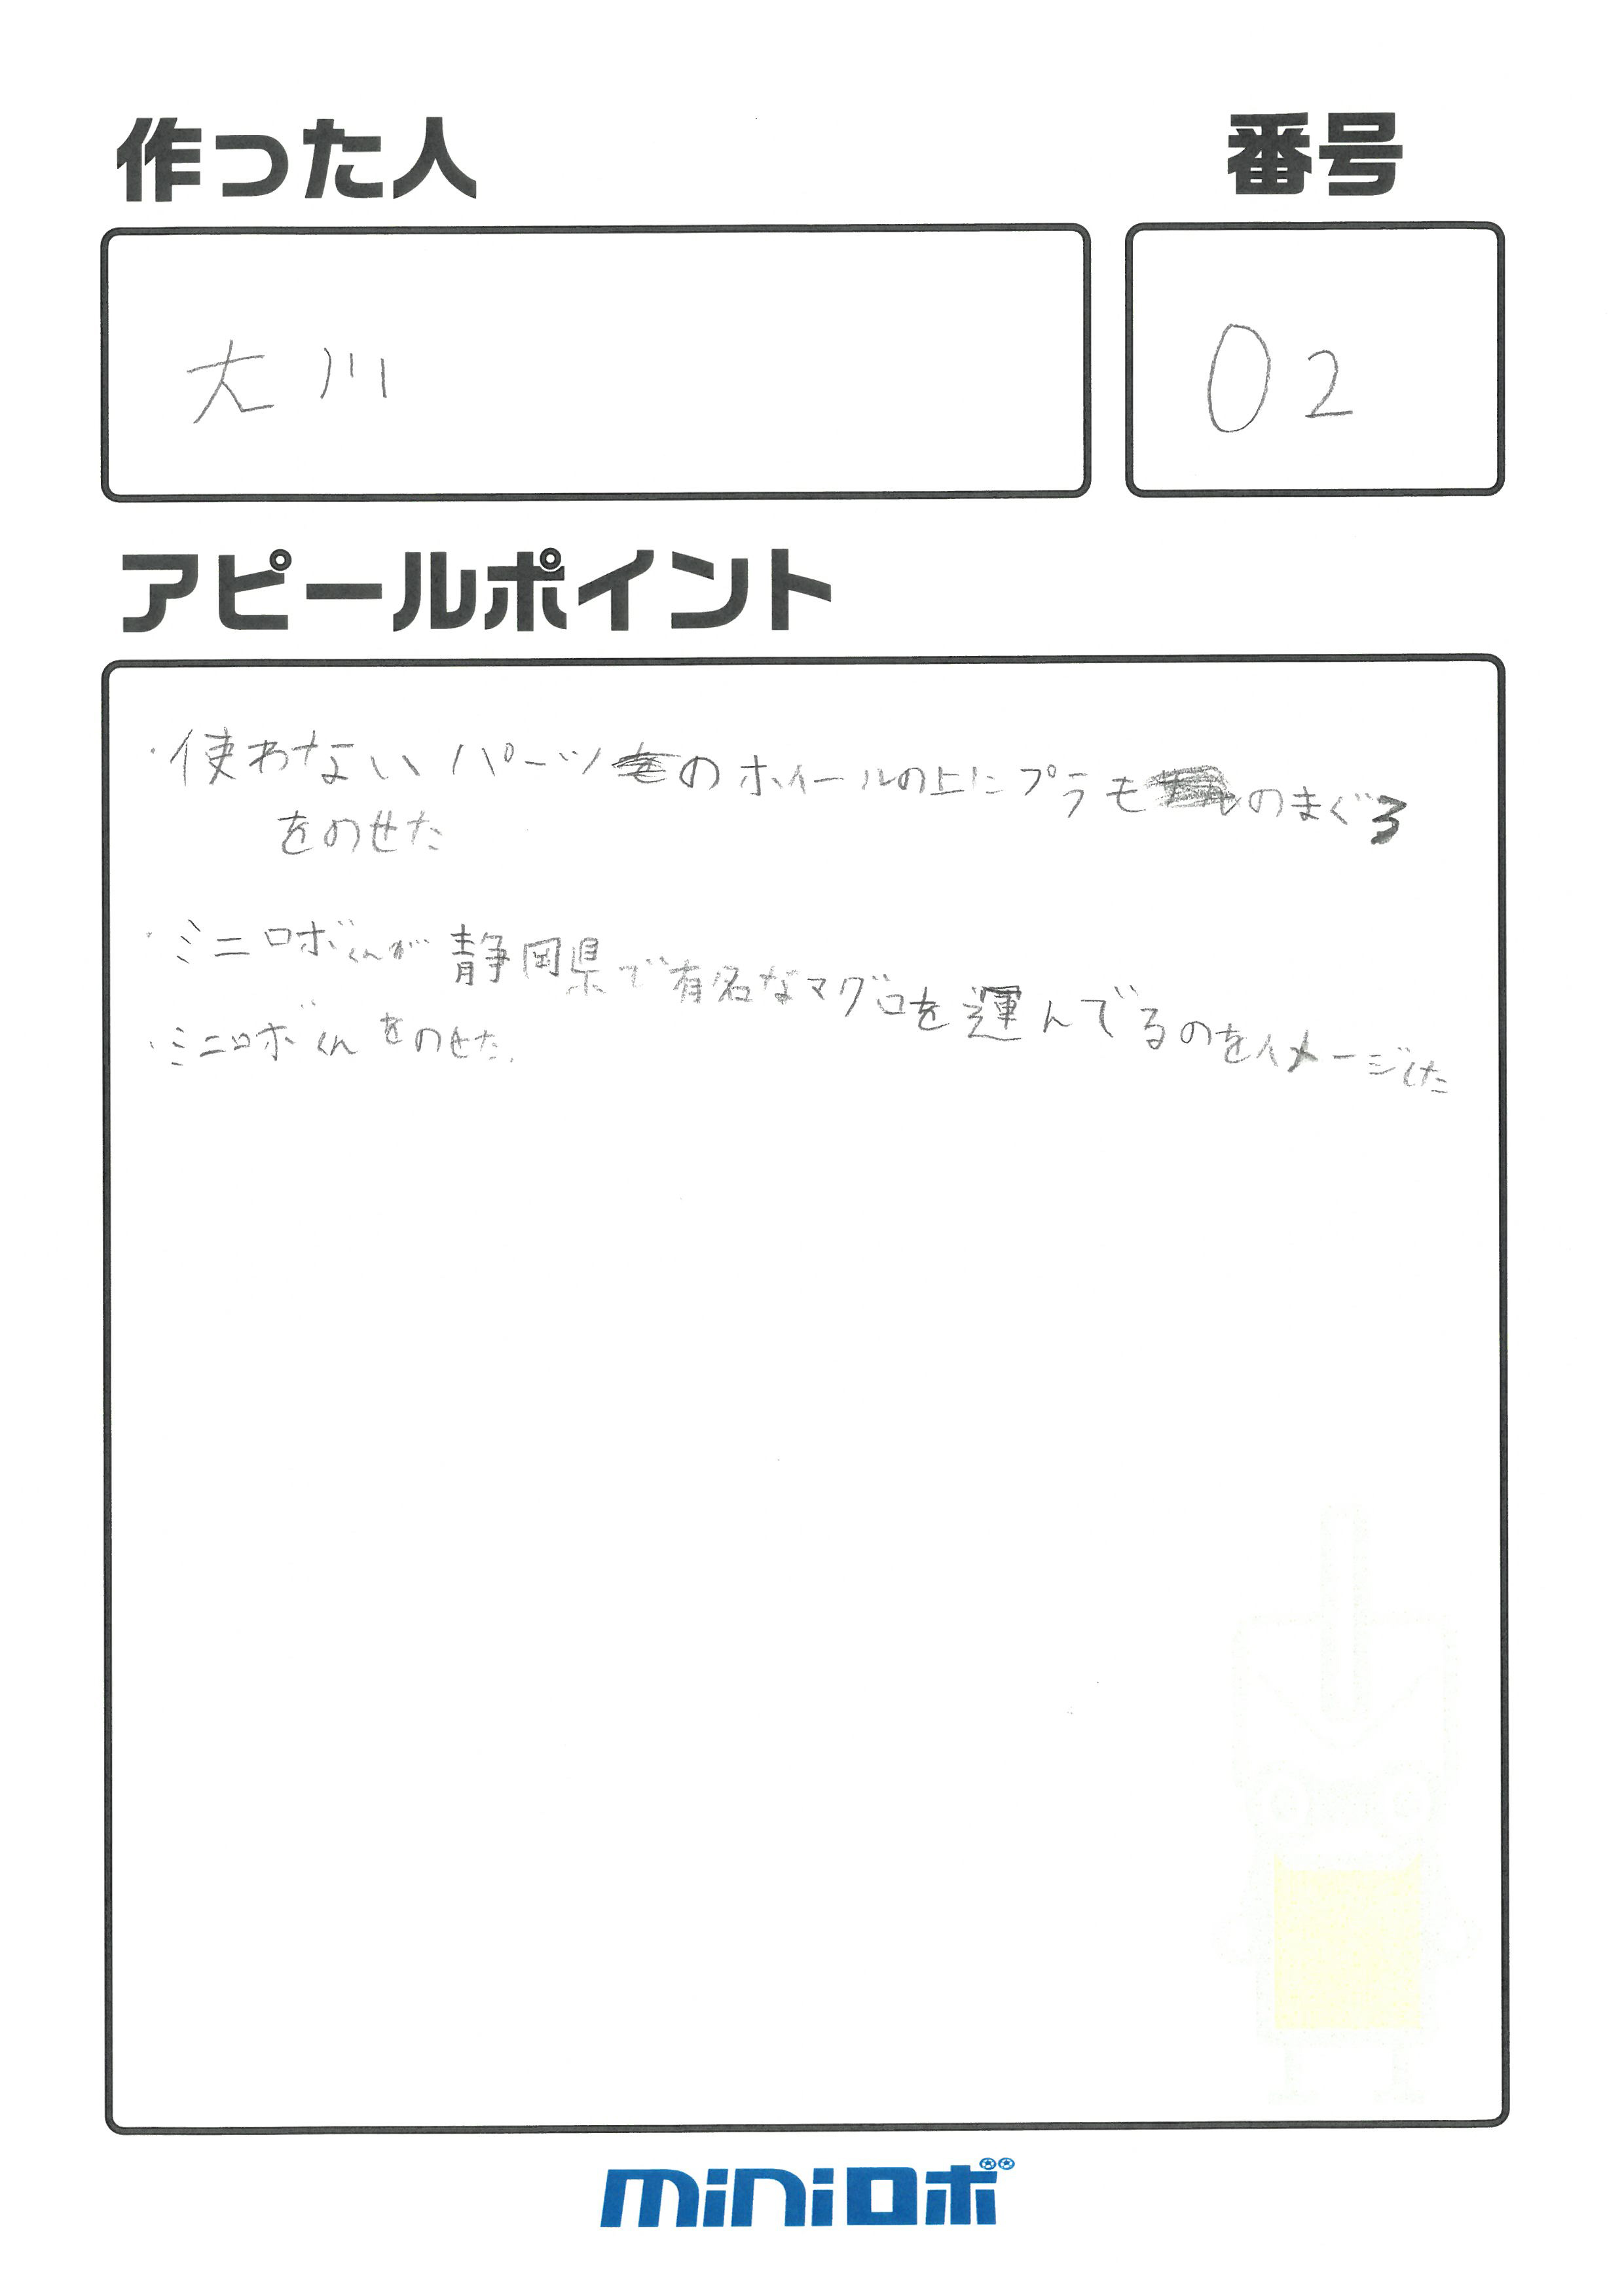 作った人
番号
大川
02
アピールポイント
・使わないパーツのホイールの上にプラモのまぐろ
をのせた
・ミニロボくんが静岡県で有名なマグロを運んでるのをイメージした
・ミニロボくんをのせた.
miniロボ